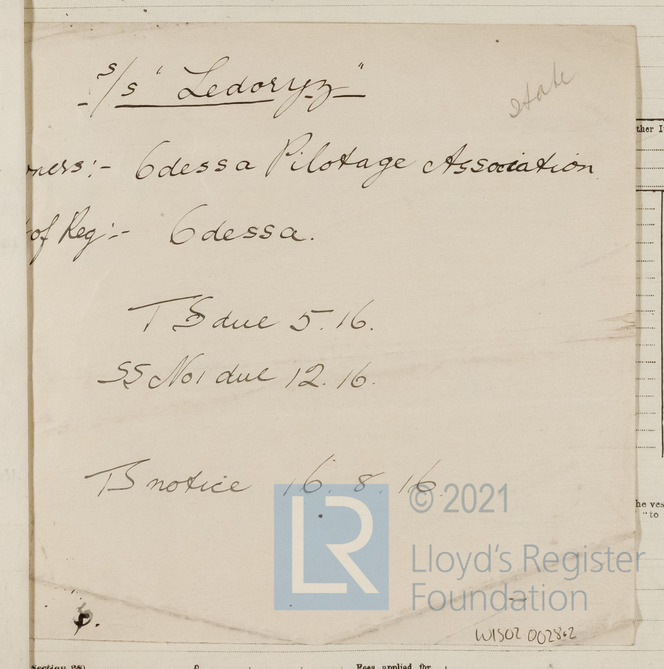 s/s "Ledoryz"
State
ners:- Odessa Pilotage Association
of Reg:- Odessa.
TS due 5.16.
SS No1 due 12.16.
TS notice 16.8.16.
LR
© 2021
Lloyd's Register
Foundation
W1502 002862
ther I
he ves
"to
Section 28)
Fees applied for